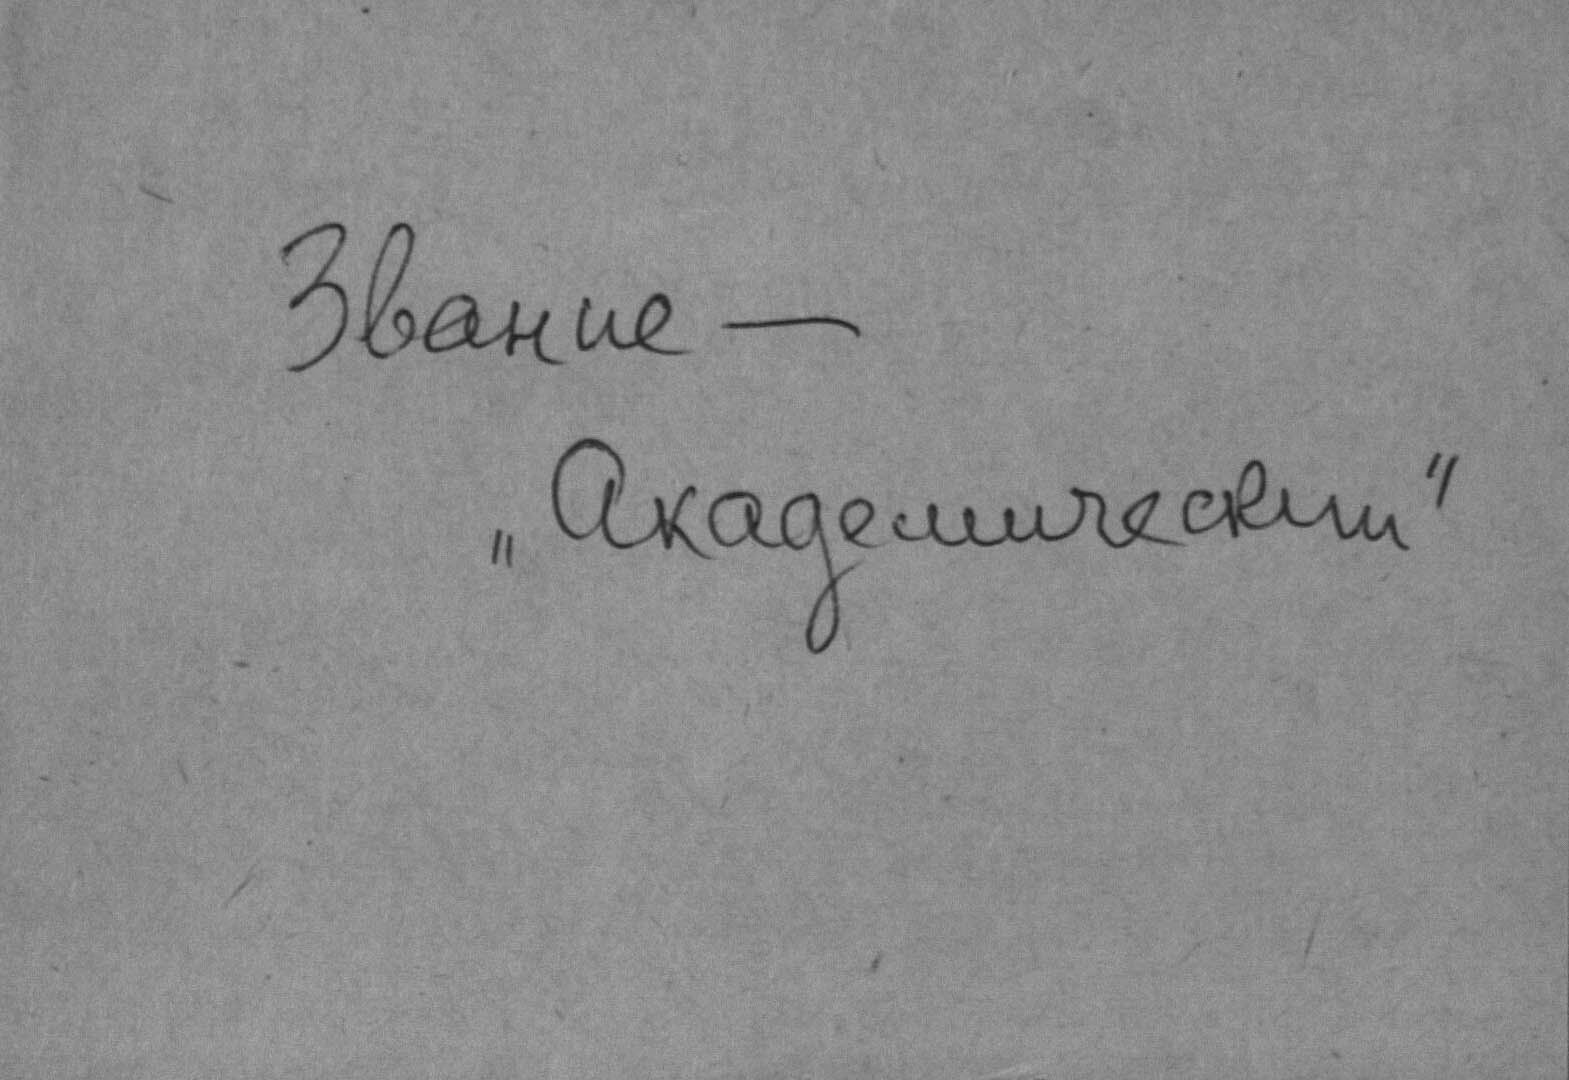 Звание —
„Академический"